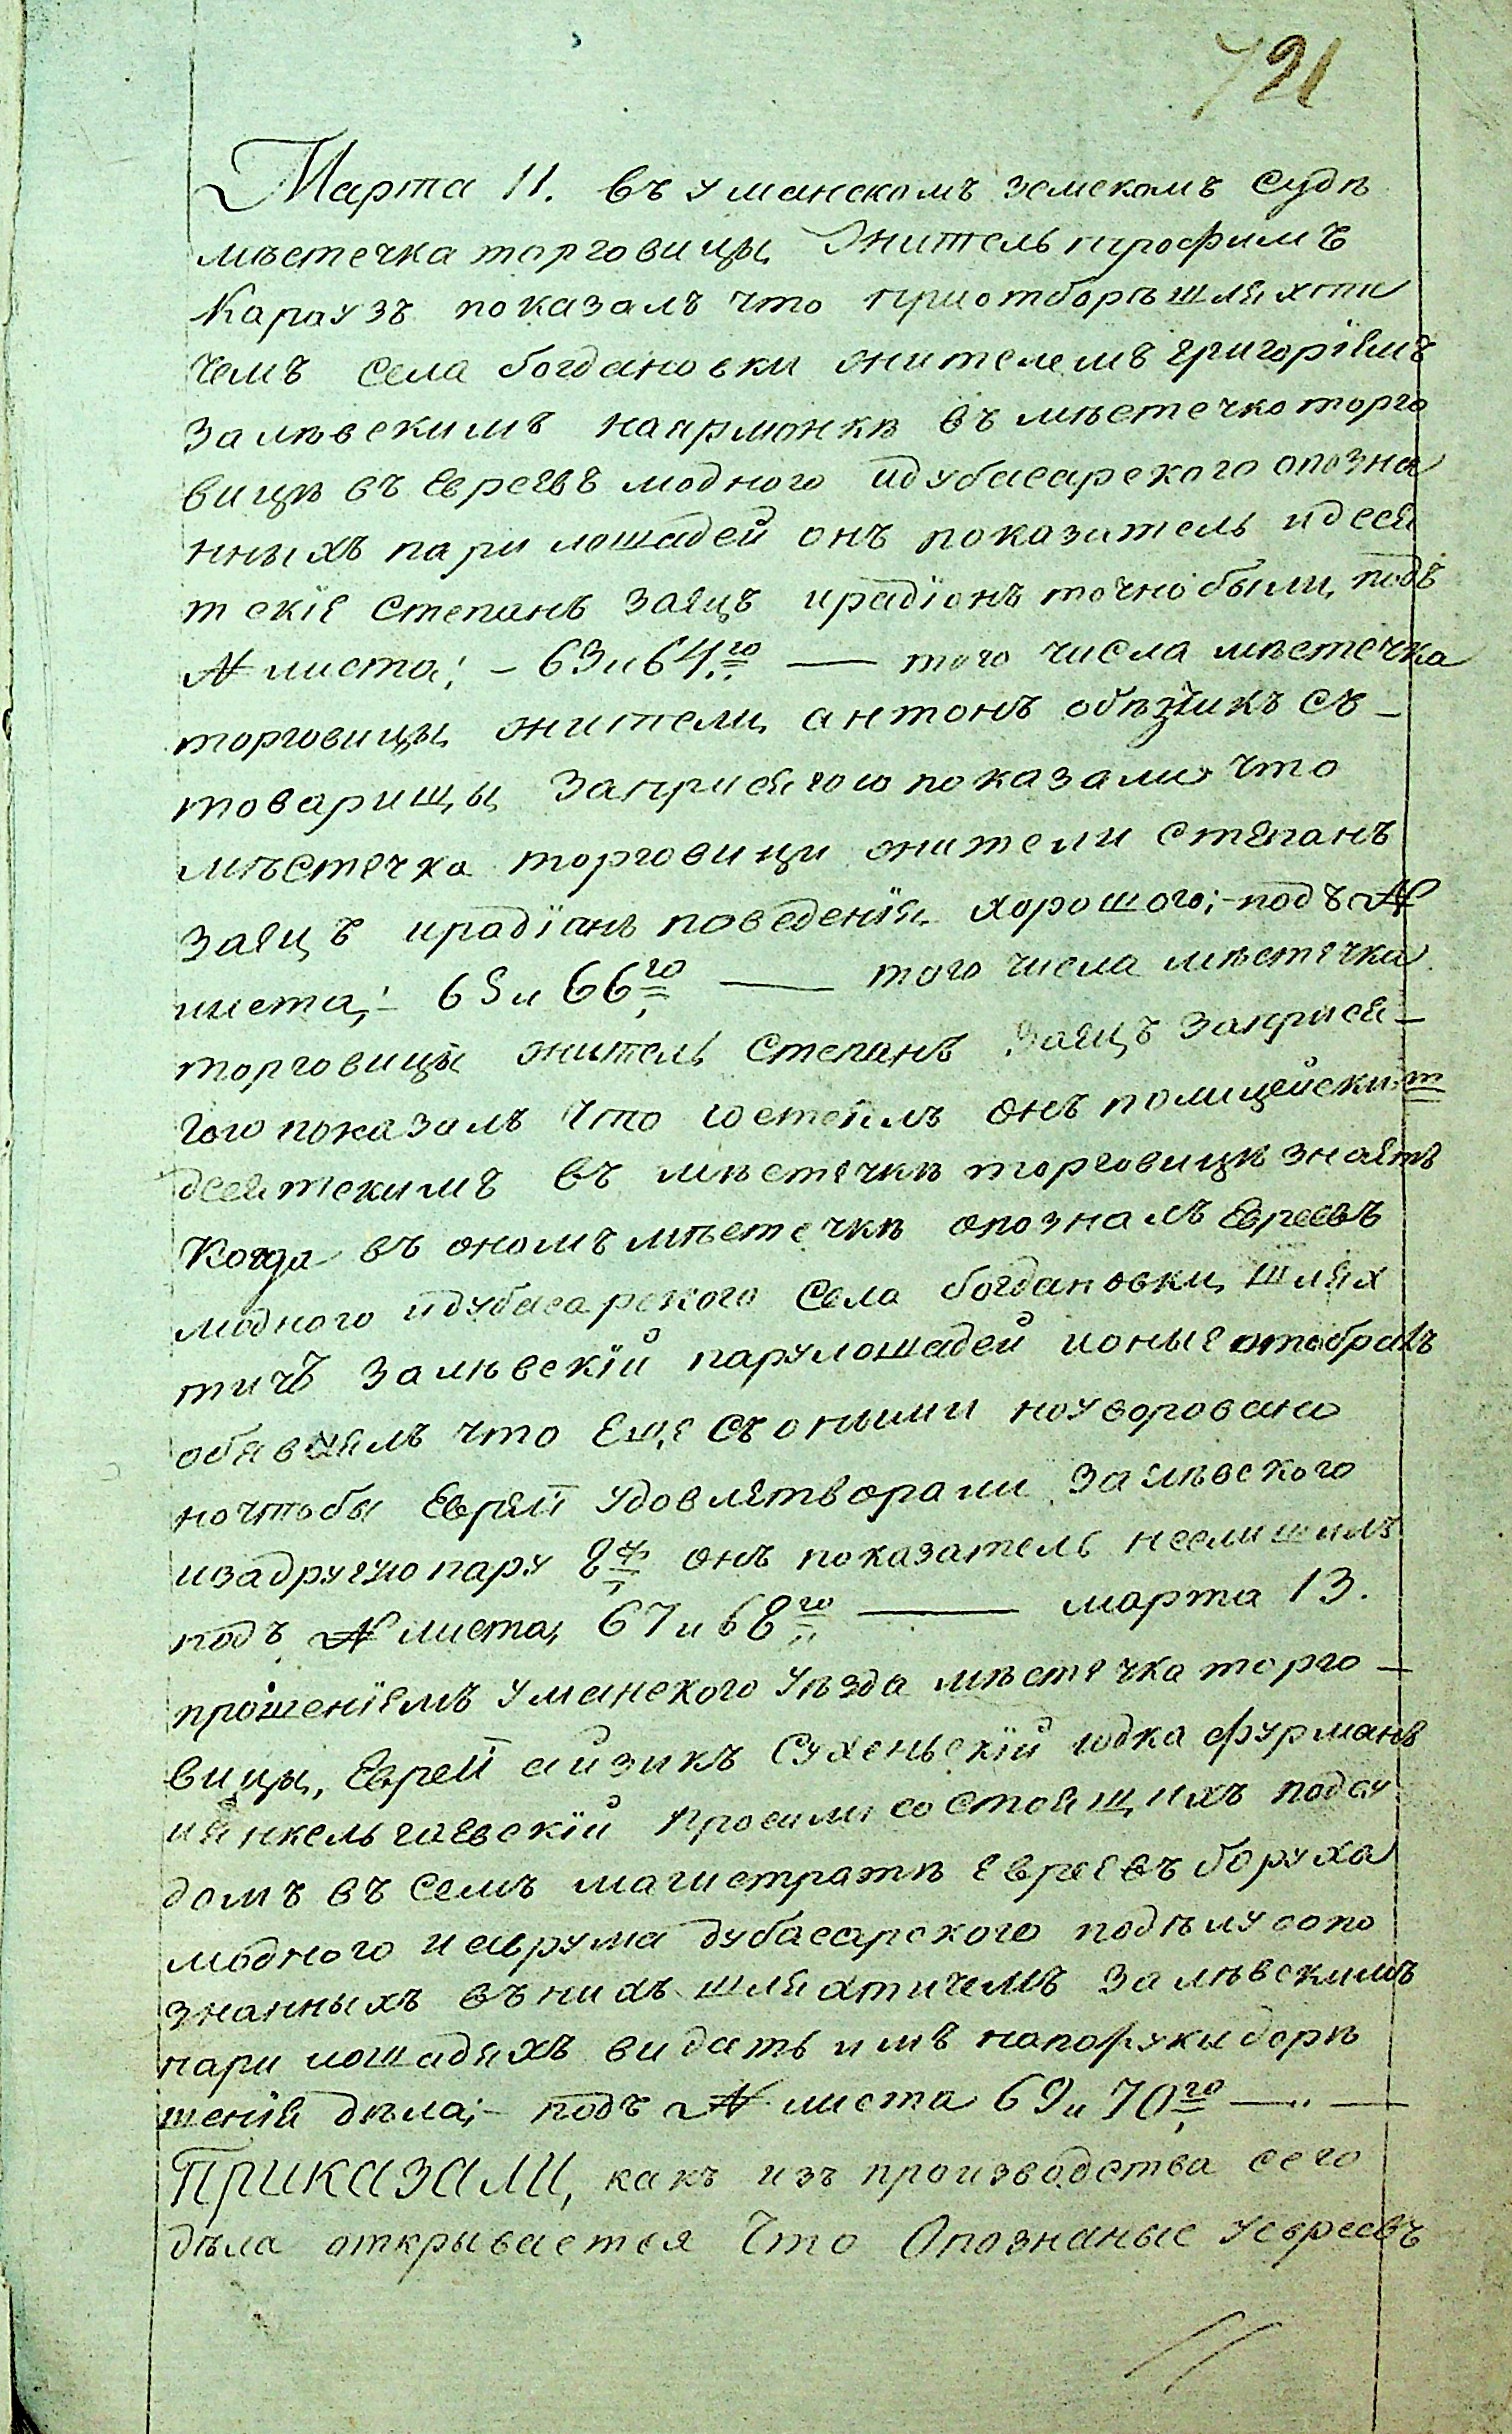 721
Марта 11. въ уманскомъ земскомъ судѣ
мѣстечка торговицы житель трофимъ
Караузъ показалъ что приотборѣ шляхти
чемъ села богдановки жителемъ григорїемъ
залѣвскимъ наярмонкѣ въ мѣстечко торго
вицѣ въ Евреевъ модного идубасарского опозна
нныхъ пари лошадей онъ показатель идеся
тскїе Степанъ Заецъ ирадїонъ точно были, подъ
№ листа; – 63 и 64.го — того числа мѣстечка
торговицы жители антонъ обѣзчикъ съ –
товарищы Заприсягою показали что
мѣстечка торговици жители степанъ
Заецъ ирадїанъ поведенїя хорошого; – подъ №
листа; – 65 и 66го — того числа мѣстечка
торговицы житель Степанъ Заецъ Заприся –
гою показалъ что состоялъ онъ полицейским
десятскимъ въ мѣстечкѣ торговицѣ знаетъ
Когда въ ономъ мѣстечкѣ опозналъ Евреевъ
модного идубасарского Села богдановки шлях
тичъ Залѣвскїй парулошадей ионые отобралъ
обявлялъ что Еще съ оними ноуворовано
ночтобы Еврей удовлетворали Залѣвского
изадругую пару онъ показатель неслишилъ
подъ № листа, 67 и 68го — марта 13.
прошенїемъ уманского уѣзда мѣстечка торго –
вицы, Еврей айзикъ Сухеньскїй юдка фурманъ
иянкель гаевскїй просили состоящихъ подсу
домъ въ семъ магистратѣ евреевъ боруха
модного иаврума дубасарского подѣлу сопо
знанныхъ въ нихъ шляхтичемъ Залѣвскимъ
пари лошадяхъ видать имъ напоруки дорѣ
шенїя дѣла; – подъ № листа 69 и 70го — . —
ПРИКАЗАЛИ, какъ изъ производства сего
дѣла открывается Что Опознаные уевреевъ